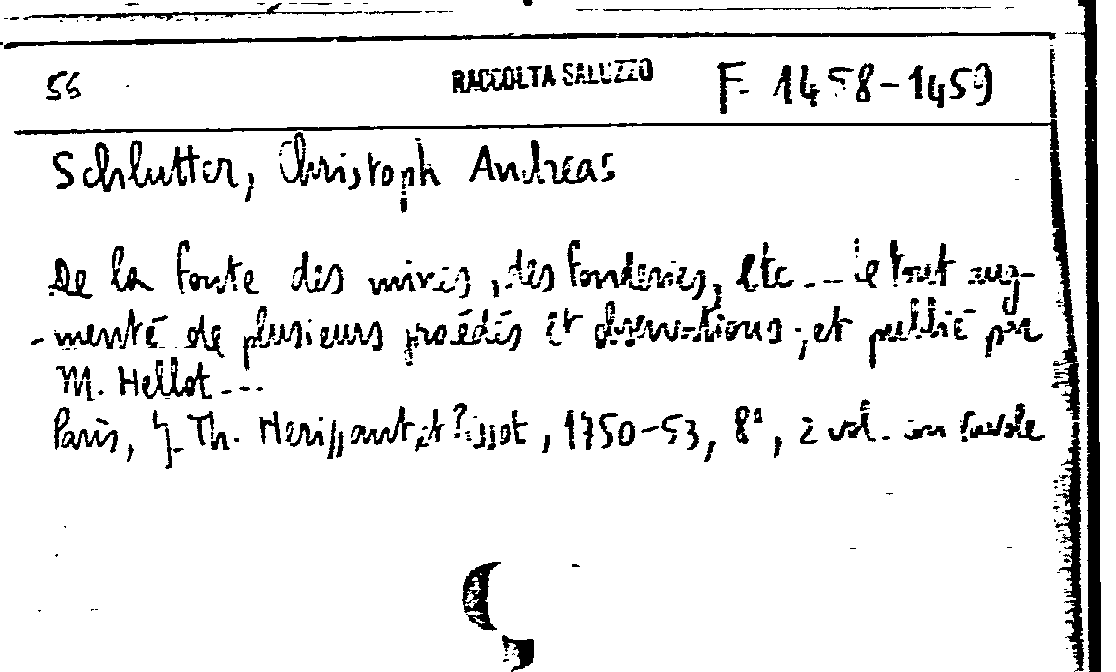 56 RACCOLTA SALUZZO F. 1458-1459
Schlutter, Christoph Andreas
De la fonte des mines, des fonderies, etc --- le tout aug-
-menté de plusieurs procédés et observations; et publié par
M. Hellot ---
Paris, J. Th. Herissant et Pissot, 1750-53, 8°, 2 vol. con tavole